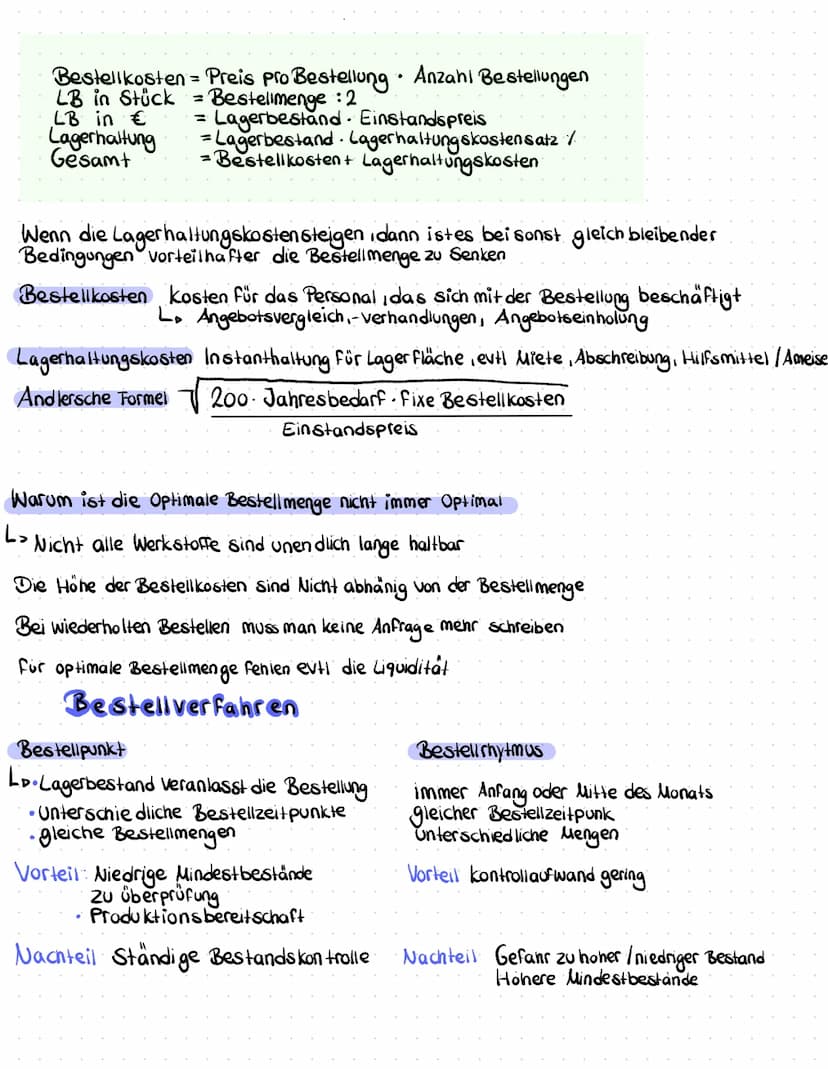 Bestellkosten = Preis pro Bestellung · Anzahl Bestellungen
LB in Stück = Bestellmenge :2
LB in € = Lagerbestand · Einstandspreis
Lagerhaltung = Lagerbestand · Lagerhaltungskostensatz %
Gesamt = Bestellkosten + Lagerhaltungskosten
Wenn die Lagerhaltungskosten steigen, dann ist es bei sonst gleich bleibender
Bedingungen vorteilhafter die Bestellmenge zu Senken
Bestellkosten Kosten für das Personal, das sich mit der Bestellung beschäftigt
↳ Angebotsvergleich, -verhandlungen, Angebotseinholung
Lagerhaltungskosten Instanthaltung für Lager Fläche, evtl Miete, Abschreibung, Hilfsmittel / Ameise
Andlersche Formel √ 200 · Jahresbedarf · Fixe Bestellkosten
Einstandspreis
Warum ist die Optimale Bestellmenge nicht immer Optimal
↳ Nicht alle Werkstoffe sind unendlich lange haltbar
Die Höhe der Bestellkosten sind Nicht abhänig von der Bestellmenge
Bei wiederholten Bestellen muss man keine Anfrage mehr schreiben
für optimale Bestellmenge fehlen evtl die Liquidität
Bestellverfahren
Bestellpunkt
↳ • Lagerbestand veranlasst die Bestellung
• unterschiedliche Bestellzeitpunkte
• gleiche Bestellmengen
Vorteil: Niedrige Mindestbestände
zu überprüfung
• Produktionsbereitschaft
Nachteil Ständige Bestandskontrolle
Bestellrhytmus
immer Anfang oder Mitte des Monats
gleicher Bestellzeitpunk
unterschiedliche Mengen
Vorteil Kontrollaufwand gering
Nachteil Gefahr zu hoher / niedriger Bestand
Höhere Mindestbestände